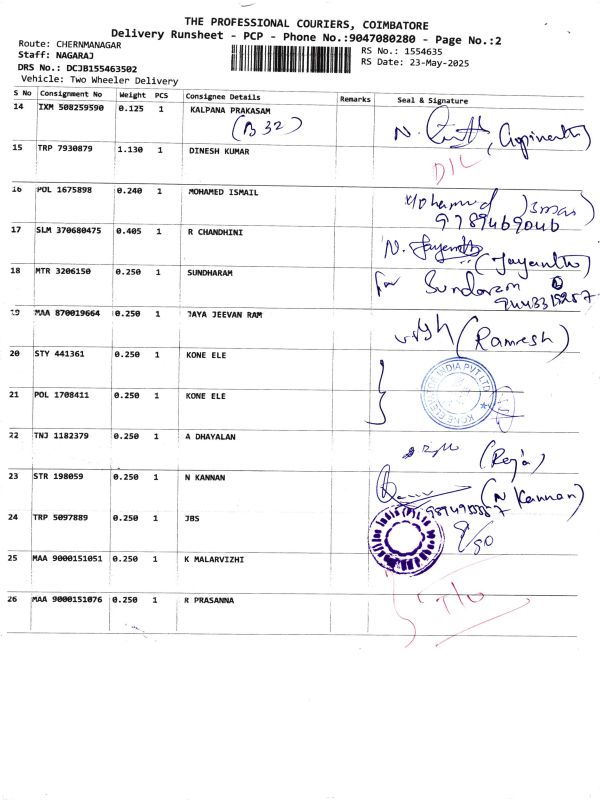 THE PROFESSIONAL COURIERS, COIMBATORE
Delivery Runsheet - PCP - Phone No.:9047080280 - Page No.:2
Route: CHERNMANAGAR
Staff: NAGARAJ
DRS No.: DCJB155463502
Vehicle: Two Wheeler Delivery
RS No.: 1554635
RS Date: 23-May-2025
S No Consignment No Weight PCS Consignee Details Remarks Seal & Signature
14 IXM 508259590 0.125 1 KALPANA PRAKASAM
(B 32)
N. (Gopinath)
15 TRP 7930879 1.130 1 DINESH KUMAR
D/L
16 POL 1675898 0.240 1 MOHAMED ISMAIL
Mohamed Ismail
9789469046
17 SLM 370680475 0.405 1 R CHANDHINI
N. Jayanth (Jayanth)
18 MTR 3206150 0.250 1 SUNDHARAM
for Sundaram
19 MAA 870019664 0.250 1 JAYA JEEVAN RAM
(Ramesh)
20 STY 441361 0.250 1 KONE ELE
21 POL 1708411 0.250 1 KONE ELE
KONE ELEVATOR INDIA PVT LTD
22 TNJ 1182379 0.250 1 A DHAYALAN
(Raja)
23 STR 198059 0.250 1 N KANNAN
(N Kannan)
24 TRP 5097889 0.250 1 JBS
25 MAA 9000151051 0.250 1 K MALARVIZHI
26 MAA 9000151076 0.250 1 R PRASANNA